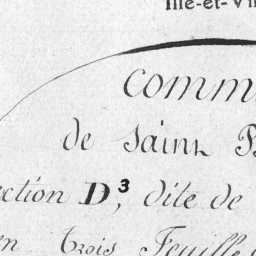 Ille-et-Vil
Comm
de Saint
ection D³, dite de
en trois Feuille